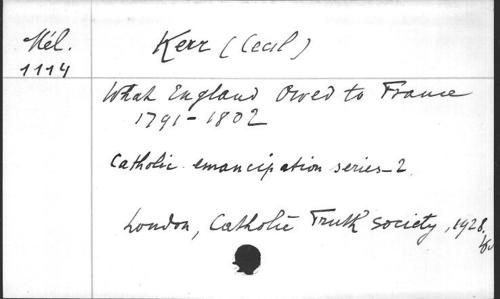 Mél.
1114
Kerr (Cecil)
What England Owed to France
1791-1802
Catholic emancipation series-2.
London, Catholic Truth Society, 1928.